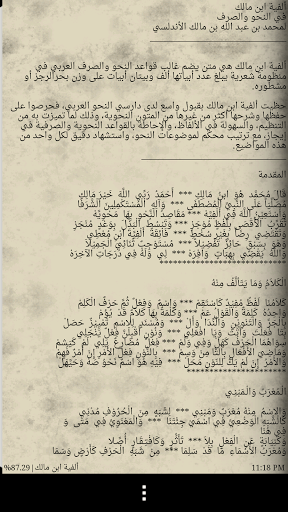 ألفية ابن مالك
في النحو والصرف
لمحمد بن عبد الله بن مالك الأندلسي
ألفية ابن مالك هي متن يضم غالب قواعد النحو والصرف العربي في
منظومة شعرية يبلغ عدد أبياتها ألف وبيتان أبيات على وزن بحر الرجز أو
مشطوره.
حظيت ألفية ابن مالك بقبول واسع لدى دارسي النحو العربي، فحرصوا على
حفظها وشرحها أكثر من غيرها من المتون النحوية، وذلك لما تميزت به من
التنظيم، والسهولة في الألفاظ، والإحاطة بالقواعد النحوية والصرفية في
إيجاز، مع ترتيب محكم لموضوعات النحو، واستشهاد دقيق لكل واحد من
هذه المواضيع.
المقدمة
قَالَ مُحَمَّد هُوَ ابنُ مَالِكِ *** أَحْمَدُ رَبِّي اللَّهَ خَيْرَ مَالِكِ
مُصَلِّيَاً عَلَى النَّبِيِّ الْمُصْطَفَى *** وَآلِهِ الْمُسْتَكْمِلِينَ الْشَّرَفَا
وَأَسْتَعِيْنُ اللَّهَ فِي أَلْفِيَّهْ *** مَقَاصِدُ النَّحْوِ بِهَا مَحْوِيَّهْ
تُقَرِّبُ الأَقْصَى بِلَفْظٍ مُوْجَزِ *** وَتَبْسُطُ الْبَذْلَ بِوَعْدٍ مُنْجَزِ
وَتَقْتَضِي رِضَاً بِغَيْرِ سُخْطِ *** فَائِقَةً أَلْفِيَّةَ ابْنِ مُعْطِي
وَهْوَ بِسَبْقٍ حَائِزٌ تَفْضِيْلاَ *** مُسْتَوْجِبٌ ثَنَائِيَ الْجَمِيْلاَ
وَاللَّهُ يَقْضِي بِهِبَاتٍ وَافِرَهْ *** لِي وَلَهُ فِي دَرَجَاتِ الآخِرَهْ
الْكَلاَمُ وَمَا يَتَألَّفُ مِنْهُ
كَلاَمُنَا لَفْظٌ مُفِيْدٌ كَاسْتَقِمْ *** وَاسْمٌ وَفِعْلٌ ثُمَّ حَرْفٌ الْكَلِمْ
وَاحِدُهُ كَلِمَةٌ وَالْقَوْلُ عَمْ *** وَكَلْمَةٌ بِهَا كَلاَمٌ قَدْ يُؤمْ
بِالْجَرِّ وَالْتَّنْوِيْنِ وَالْنِّدَا وَألْ *** وَمُسْنَدٍ لِلاسْمِ تَمْيِيْزٌ حَصَلْ
بِتَا فَعَلْتَ وَأَتَتْ وَيَا افْعَلِي *** وَنُوْنِ أَقْبِلَنَّ فِعْلٌ يَنْجَلِي
سِوَاهُمَا الْحَرْفُ كَهَلْ وَفِي وَلَمْ *** فِعْلٌ مُضَارِعٌ يَلِي لَمْ كَيَشَمْ
وَمَاضِيَ الأَفْعَالِ بِالتَّا مِزْ وَسِمْ *** بِالنُّوْنِ فِعْلَ الأَمْرِ إِنْ أَمْرٌ فُهِمْ
وَالأَمْرُ إِنْ لَمْ يَكُ لِلنُّوْنِ مَحَلْ *** فِيْهِ هُوَ اسْمٌ نَحْوُ صَهْ وَحَيَّهَلْ
الْمُعْرَبُ وَالْمَبْنِي
وَالاِسْمُ مِنْهُ مُعْرَبٌ وَمَبْنِي *** لِشَبَهٍ مِنَ الْحُرُوْفِ مُدْنِي
كَالْشَّبَهِ الْوَضْعِيِّ فِي اسْمَيْ جِئْتَنَا *** وَالْمَعْنَوِيِّ فِي مَتَى وَفِي هُنَا
وَكَنِيَابَةٍ عَنِ الْفِعْلِ بِلاَ *** تَأَثُّرٍ وَكَافْتِقَارٍ أُصِّلاَ
وَمُعْرَبُ الأَسْمَاءِ مَا قَدْ سَلِمَا *** مِنْ شَبَهِ الْحَرْفِ كَأَرْضٍ وَسُمَا
ألفية ابن مالك | 87.29%
11:18 PM